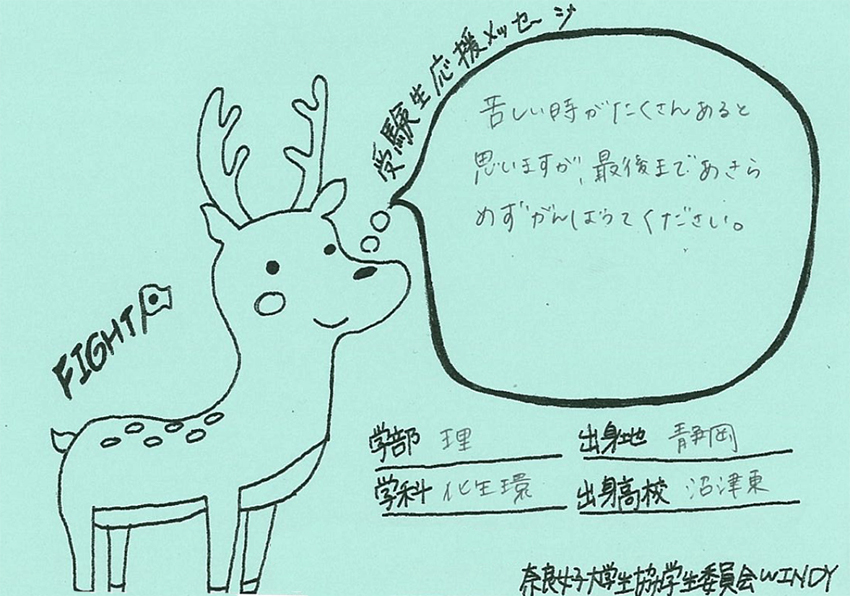 受験生応援メッセージ
苦しい時がたくさんあると
思いますが、最後まであきら
めずがんばってください。
FIGHT
学部 理
出身地 静岡
学科 化生環
出身高校 沼津東
奈良女子大学生協学生委員会WINDY